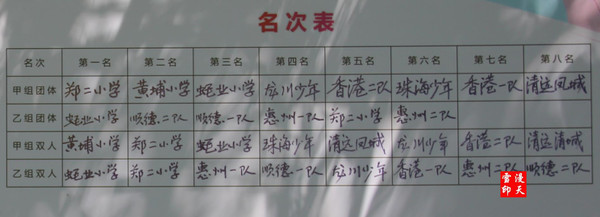 名次表
名次 第一名 第二名 第三名 第四名 第五名 第六名 第七名 第八名
甲组团体 郑二小学 黄埔小学 蚝业小学 龙川少年 香港二队 珠海少年 香港一队 清远凤城
乙组团体 蚝业小学 顺德二队 顺德一队 惠州一队 郑二小学 惠州二队
甲组双人 黄埔小学 郑二小学 蚝业小学 珠海少年 清远凤城 龙川少年 香港二队 清远清城
乙组双人 蚝业小学 郑二小学 惠州一队 顺德一队 龙川少年 香港一队 惠州二队 顺德二队
雪漫
印天